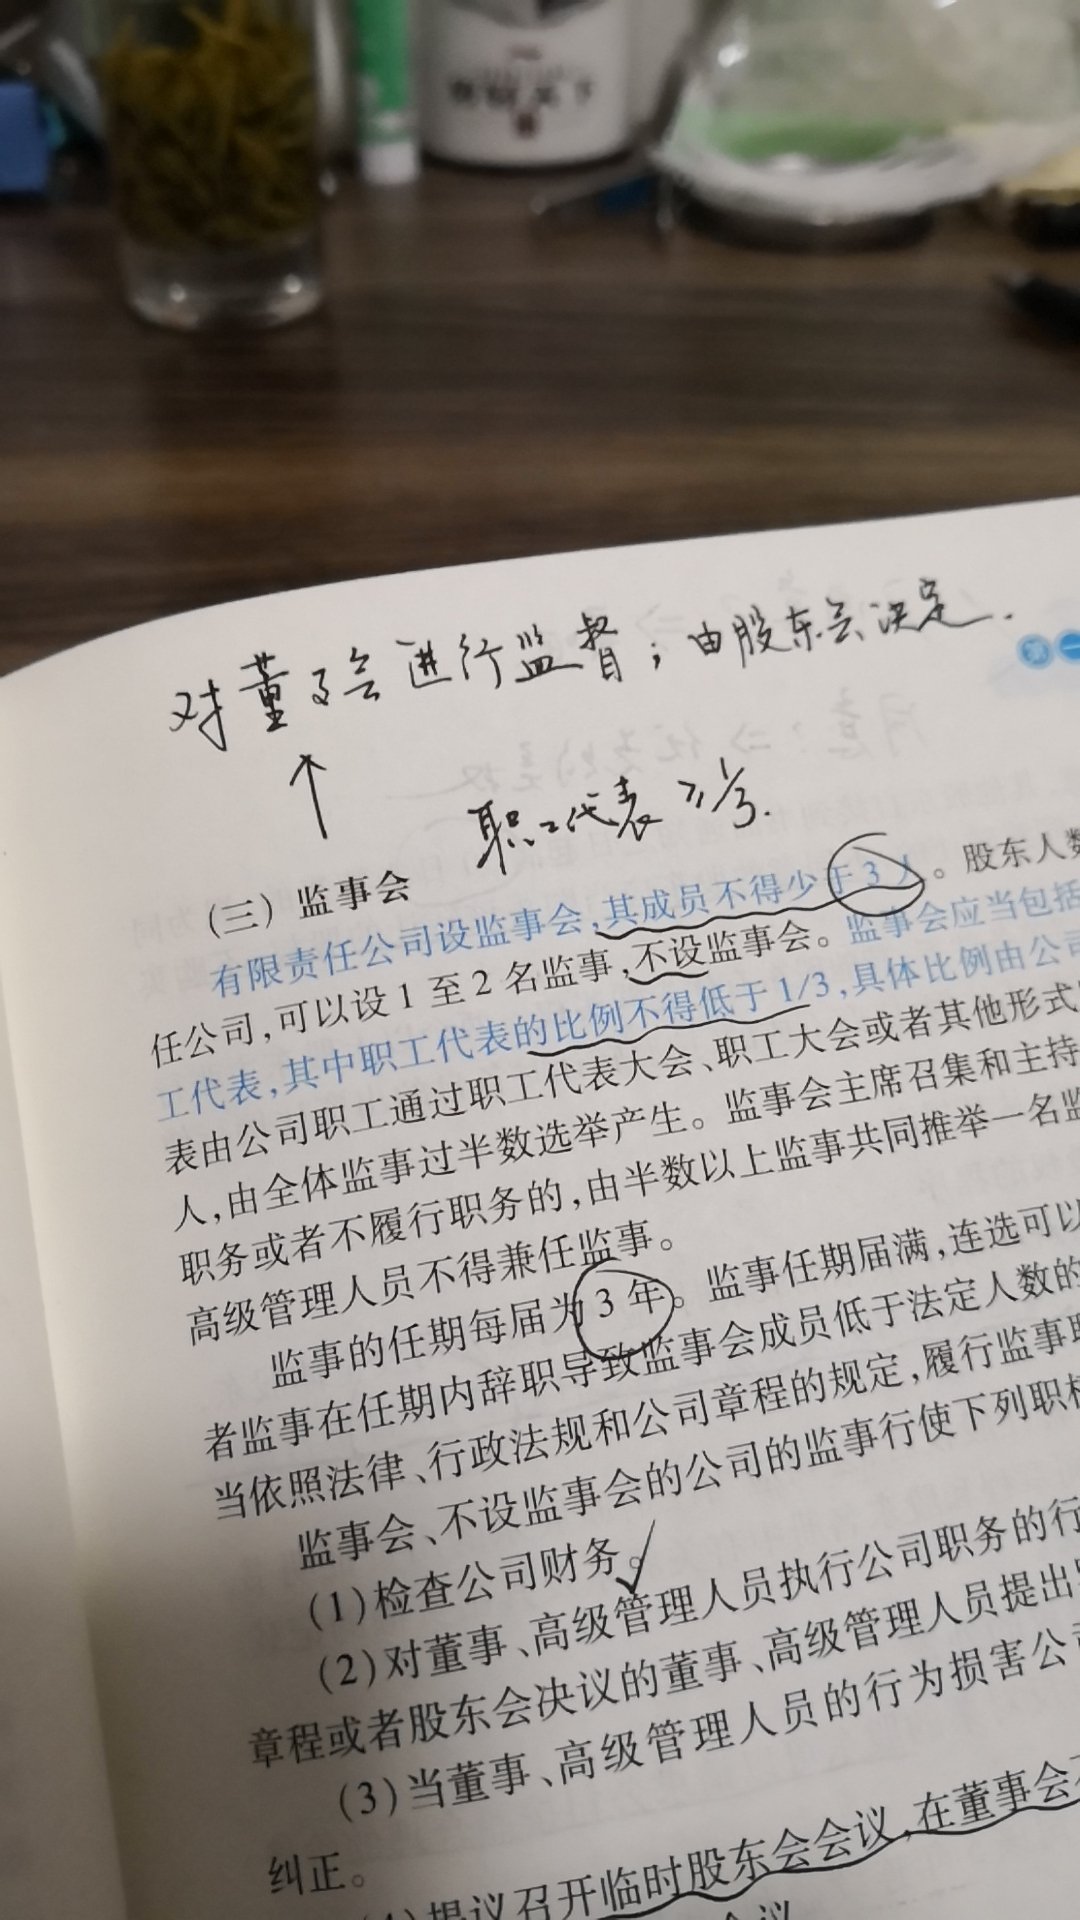 对董事会进行监督；由股东会决定.
职工代表≥1/3.
第一
(三) 监事会
有限责任公司设监事会,其成员不得少于3人。股东人数
任公司,可以设1至2名监事,不设监事会。监事会应当包括
工代表,其中职工代表的比例不得低于1/3,具体比例由公司
表由公司职工通过职工代表大会、职工大会或者其他形式
人,由全体监事过半数选举产生。监事会主席召集和主持
职务或者不履行职务的,由半数以上监事共同推举一名监
高级管理人员不得兼任监事。
监事的任期每届为3年。监事任期届满,连选可以
者监事在任期内辞职导致监事会成员低于法定人数的
当依照法律、行政法规和公司章程的规定,履行监事职
监事会、不设监事会的公司的监事行使下列职权
(1)检查公司财务。
(2)对董事、高级管理人员执行公司职务的行
章程或者股东会决议的董事、高级管理人员提出
(3)当董事、高级管理人员的行为损害公司
纠正。
提议召开临时股东会会议,在董事会不
会议